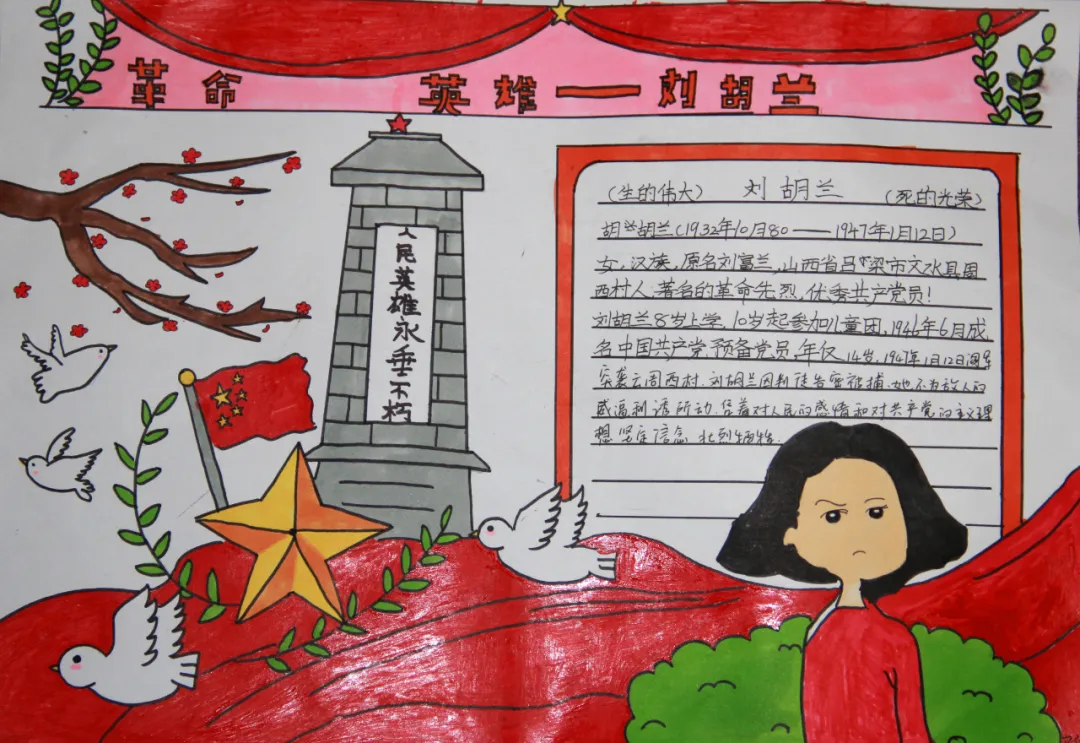 革命 英雄——刘胡兰
人民英雄永垂不朽
(生的伟大) 刘胡兰 (死的光荣)
胡兰胡兰(1932年10月80——1947年1月12日)
女,汉族,原名刘富兰,山西省吕梁市文水县周
西村人,著名的革命先烈,优秀共产党员!
刘胡兰8岁上学,10岁起参加儿童团,1946年6月成
名中国共产党预备党员,年仅14岁,1947年1月12日
突袭云周西村,刘胡兰因判徒告密被捕,她不为敌人的
威逼利诱所动,凭着对人民的感情和对共产党的主义理
想坚定信念,壮烈牺牲.